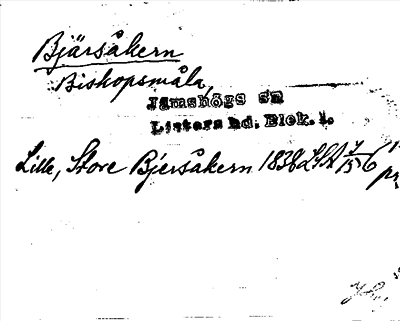 Bjärsåkern
Bishopsmåla,
Jämshögs sn
Listers hd. Blek. l.
Lille, Store Bjersåkern 1838 LSA